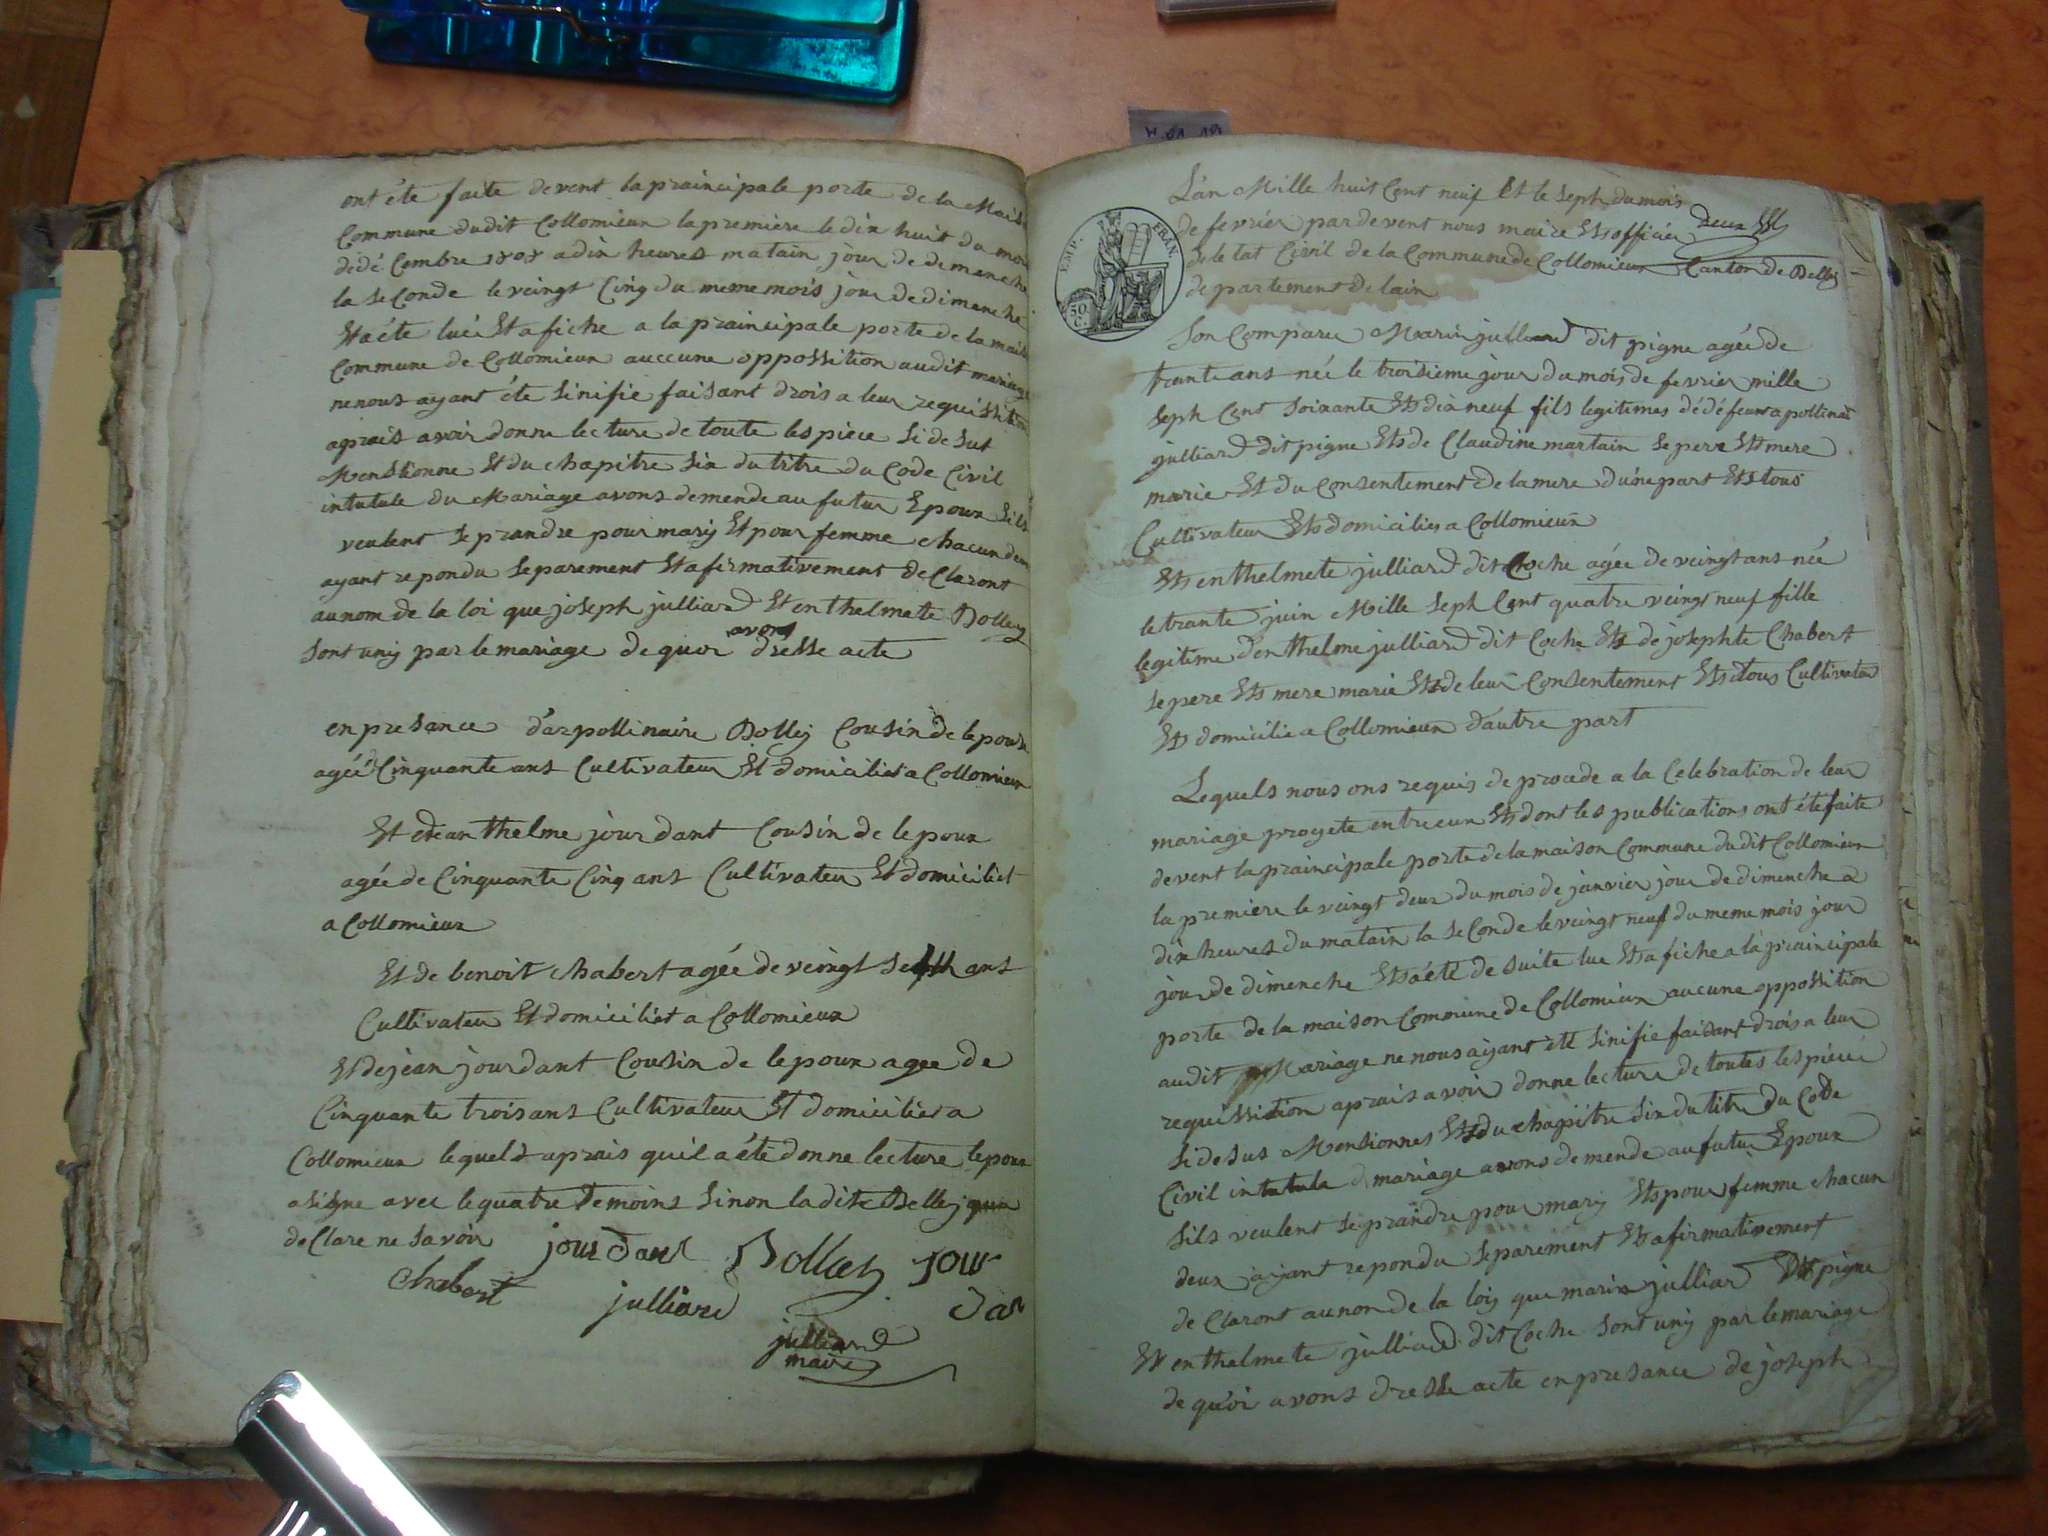 ont éte faite devent la praincipale porte de la Mais
Commune dudit Collomieux la premiere le dix huit du moi
dédé Cembre 1808 a dix heures matain jour de demenche
la seConde le veingt Cinq du meme mois jour de dimenche
Et a éte lué Et afiche a la praincipale porte de la mais
Commune de Collomieux auccune oppossition audit mariage
ne nous ayant éte sinifie faisant drois a leur requissition
aprais avoir donne lecture de toute les piece si de sus
Menstionne Et du chapitre six du titre du Code Civil
intutule du Mariage avons demende au futur Epoux sils
veulent se prandre pour mary Et pour femme chacun deux
ayant repondu separement Et afirmativement deClaront
au nom de la loi que joseph julliard Et enthelmete Dolley
sont uniy par le mariage de quoi avons dresse acte
en presance d'appollinaire Dolley Cousin de lepoux
agéé Cinquante ans Cultivateur Et domicilies a Collomieux
Et de anthelme jourdant Cousin de lepoux
agée de Cinquante Cinq ans Cultivateur Et domiciliet
a Collomieux
Et de benoit chabert agée de veingt ans
Cultivateur Et domiciliet a Collomieux
Et de jéan jourdant Cousin de lepoux agee de
Cinquante trois ans Cultivateur Et domicilies a
Collomieux lequels aprais quil a éte donne lecture lepoux
a signe avec le quatre temoins sinon la dite Dolley qui a
deClare ne savoir
jourdant Dollay jour
dan
Chabert julliard
julliard
maire
H 81 19
L'an Mille huit Cent neuf Et le seph du mois
de fevrier pardevent nous maire Et officier
de letat Civil de la Commune de Collomieux Canton de Belley
departement de lain
EMP. FRAN.
50 C.
Son Comparu Marin julliard dit pigne agée de
trante ans née le troisieme jour du mois de fevrier mille
seph Cent soixante Et dix neuf fils legitimes dédéfeunt apollinai
julliard dit pigne Et de Claudine martain se pere Et mere
marie Et du Consentement de la mere d'une part Et tous
Cultivateur Et domicilies a Collomieux
Et enthelmete julliard dit Coche agée de veingt ans née
le trante juin Mille seph Cent quatre veingt neuf fille
legitime d'enthelme julliard dit Coche Et de josephte Chabert
se pere Et mere marie Et de leur Consentement Et tous Cultivateur
Et domicilie a Collomieux d'autre part
Lequels nous ons requis de procede a la Celebration de leur
mariage proyete entre eux Et dont les publications ont éte faite
devent la praincipale porte de la maison Commune dudit Collomieux
la premiere le veingt deux du mois de janvier jour de dimenche a
dix heures du matain la seConde le veingt neuf du meme mois jour
jour de dimenche Et a éte de suite lue Et afiche a la praincipale
porte de la maison Commune de Collomieux aucune oppossition
audit Mariage ne nous ayant éte sinifie faisant drois a leur
requissition aprais avoir donne lecture de toutes les piece
si de sus Mensionnes Et du chapitre six du titre du Code
Civil intutule d mariage avons demende au futur Epoux
sils veulent se prandre pour mary Et pour femme chacun
deux ayant repondu separement Et afirmativement
deClaront au non de la loiy que marin julliard dit pigne
Et enthelmete julliard dit Coche sont uniy par le mariage
de quoi avons dresse acte en presance de joseph